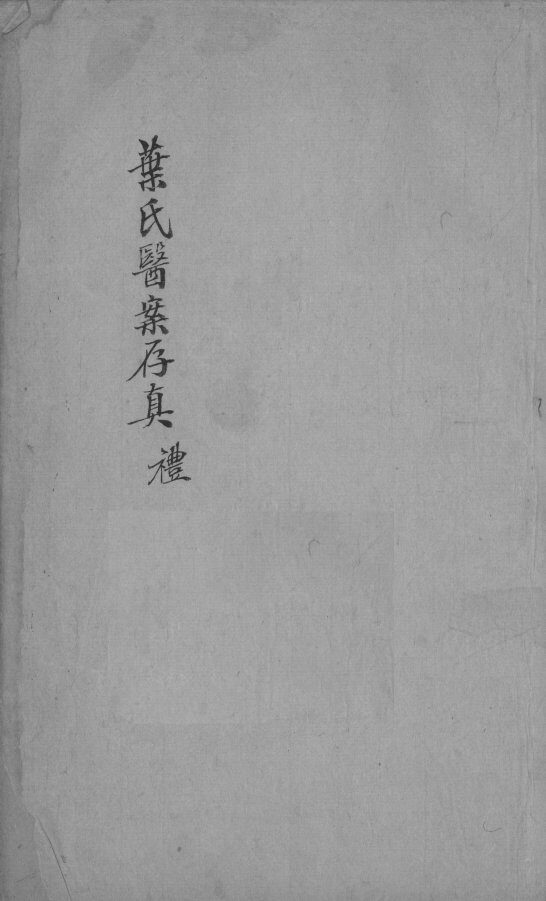 葉氏醫案存真
禮